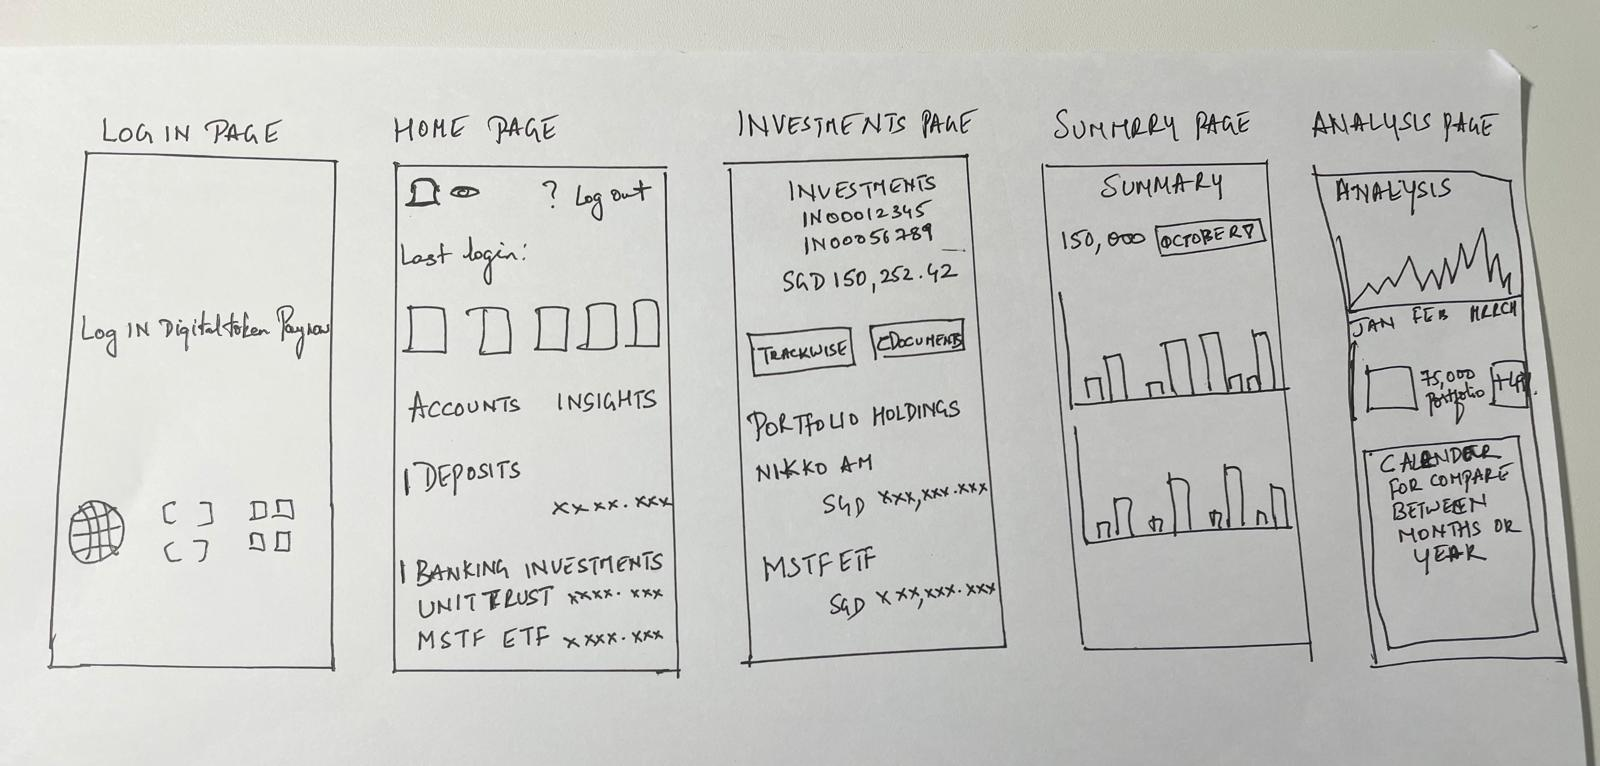 LOG IN PAGE
Log IN Digital token Paynow
HOME PAGE
? Log out
Last login:
ACCOUNTS INSIGHTS
DEPOSITS
xxxx.xxx
BANKING INVESTMENTS
UNIT TRUST xxxx.xxx
MSTF ETF xxxx.xxx
INVESTMENTS PAGE
INVESTMENTS
IN00012345
IN00056789
SGD 150,252.42
TRACKWISE
EDOCUMENTS
PORTFOLIO HOLDINGS
NIKKO AM
SGD xxx,xxx.xxx
MSTF ETF
SGD xxx,xxx.xxx
SUMMRRY PAGE
SUMMARY
150,000 OCTOBER
ANALYSIS PAGE
ANALYSIS
JAN FEB MRRCH
75,000
Portfolio
CALANDER
FOR COMPARE
BETWEEN
MONTHS OR
YEAR